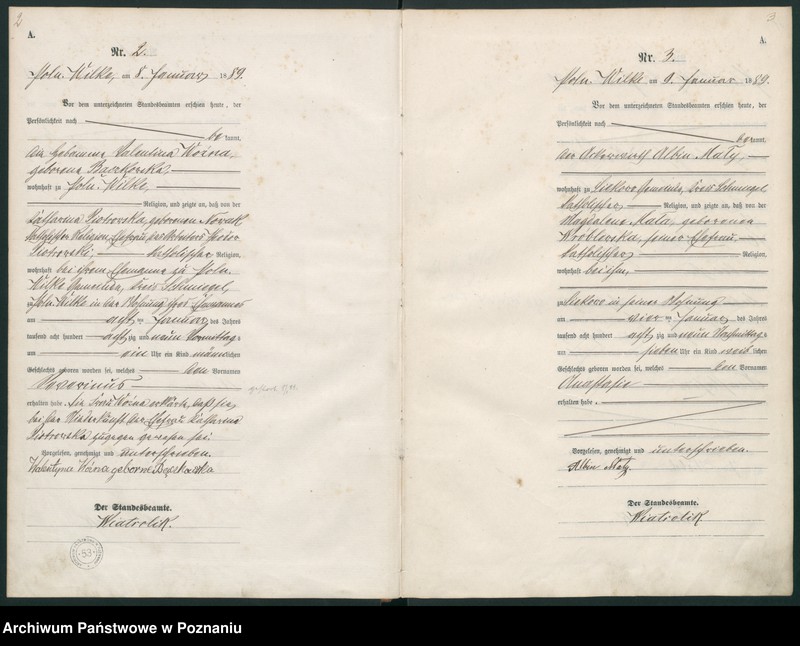 2
A.
Nr. 2.
Poln. Wilke, am 8. Januar 1889.
Vor dem unterzeichneten Standesbeamten erschien heute, der
Persönlichkeit nach
be kannt,
die Hebamme Valentina Woina,
geborene
wohnhaft zu Poln. Wilke,
Religion, und zeigte an, daß von der
Katharina Piotrovska, geborenen Novak
katholischer Religion, Ehefrau des
Piotrovski, katholischer Religion,
wohnhaft bei ihrem Ehemanne zu Poln.
Wilke Gemeinde, Kreis Schmiegel,
zu Poln. Wilke in der Wohnung ihres Ehemannes
am acht ten Januar des Jahres
tausend acht hundert acht zig und neun Vormittags
um ein Uhr ein Kind männlichen
Geschlechts geboren worden sei, welches den Vornamen
Severinus
erhalten habe. Die Frau Woina erklärte, daß sie
bei der Niederkunft der Ehefrau Katharina
Piotrovska zugegen gewesen sei.
Vorgelesen, genehmigt und unterschrieben.
Walentyna Woina geborne
Der Standesbeamte.
Wiatrolik.
53
3
A.
Nr. 3.
Poln. Wilke am 9. Januar 1889.
Vor dem unterzeichneten Standesbeamten erschien heute, der
Persönlichkeit nach
be kannt,
der Ackerwirth Albin Maly,
wohnhaft zu Siekovo Gemeinde, Kreis Schmiegel,
katholischer Religion, und zeigte an, daß von der
Magdalena Mala, geborenen
Wroblevska, seiner Ehefrau,
katholischer Religion,
wohnhaft bei ihm,
zu Siekovo in seiner Wohnung
am vier ten Januar des Jahres
tausend acht hundert acht zig und neun Nachmittags
um sieben Uhr ein Kind weib lichen
Geschlechts geboren worden sei, welches den Vornamen
Anastasie
erhalten habe.
Vorgelesen, genehmigt und unterschrieben.
Albin Maly.
Der Standesbeamte.
Wiatrolik.
Archiwum Państwowe w Poznaniu